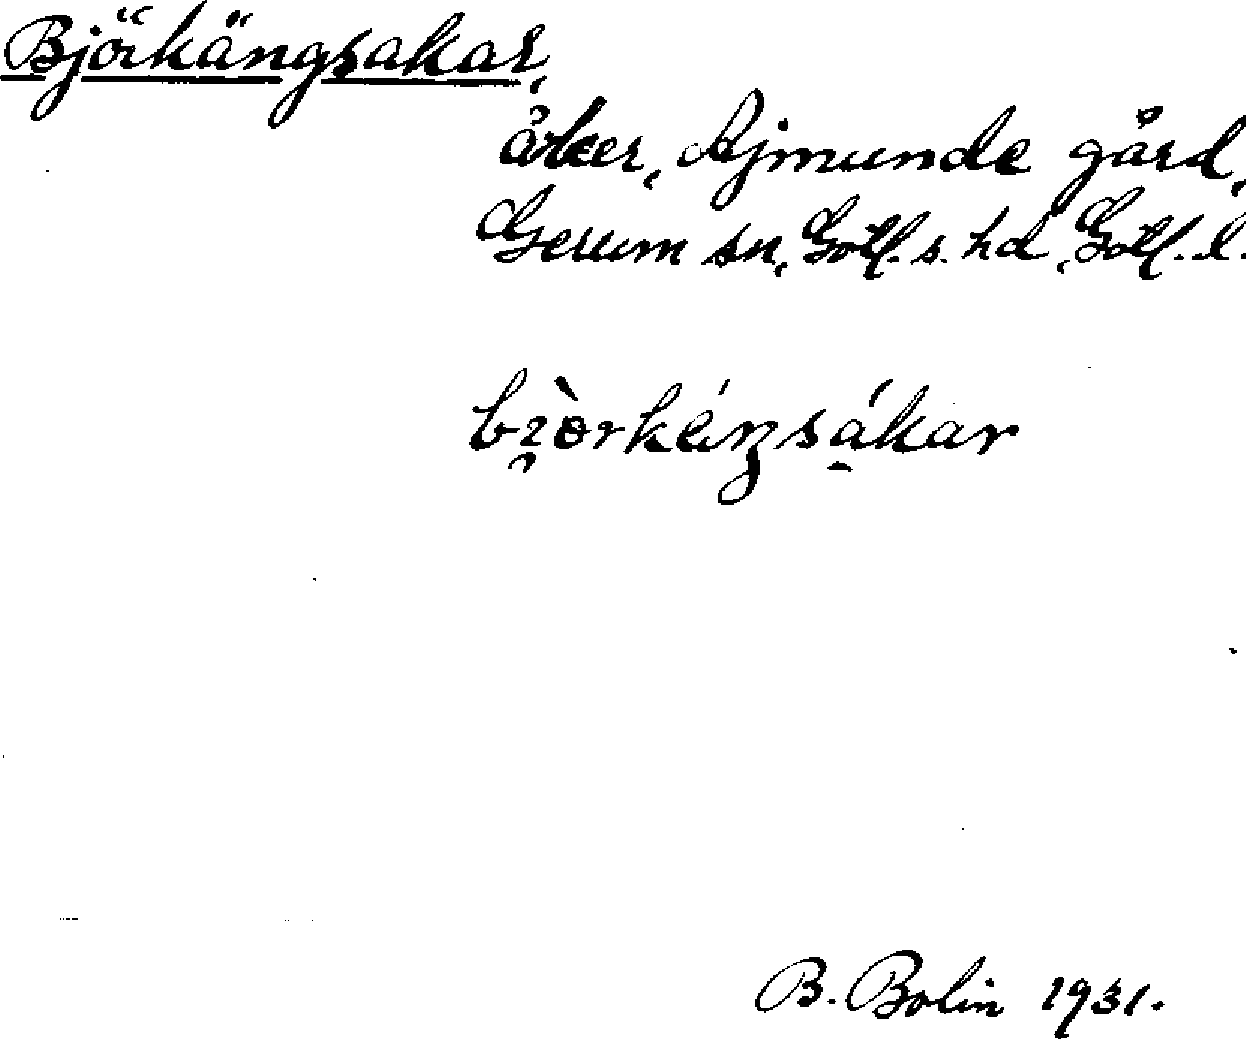 Björkängsakar,
åker, Ajmunde gård,
Gerum sn, Gotl. s. hd, Gotl. l.
bi̯òrkáŋsákar
B. Bolin 1931.